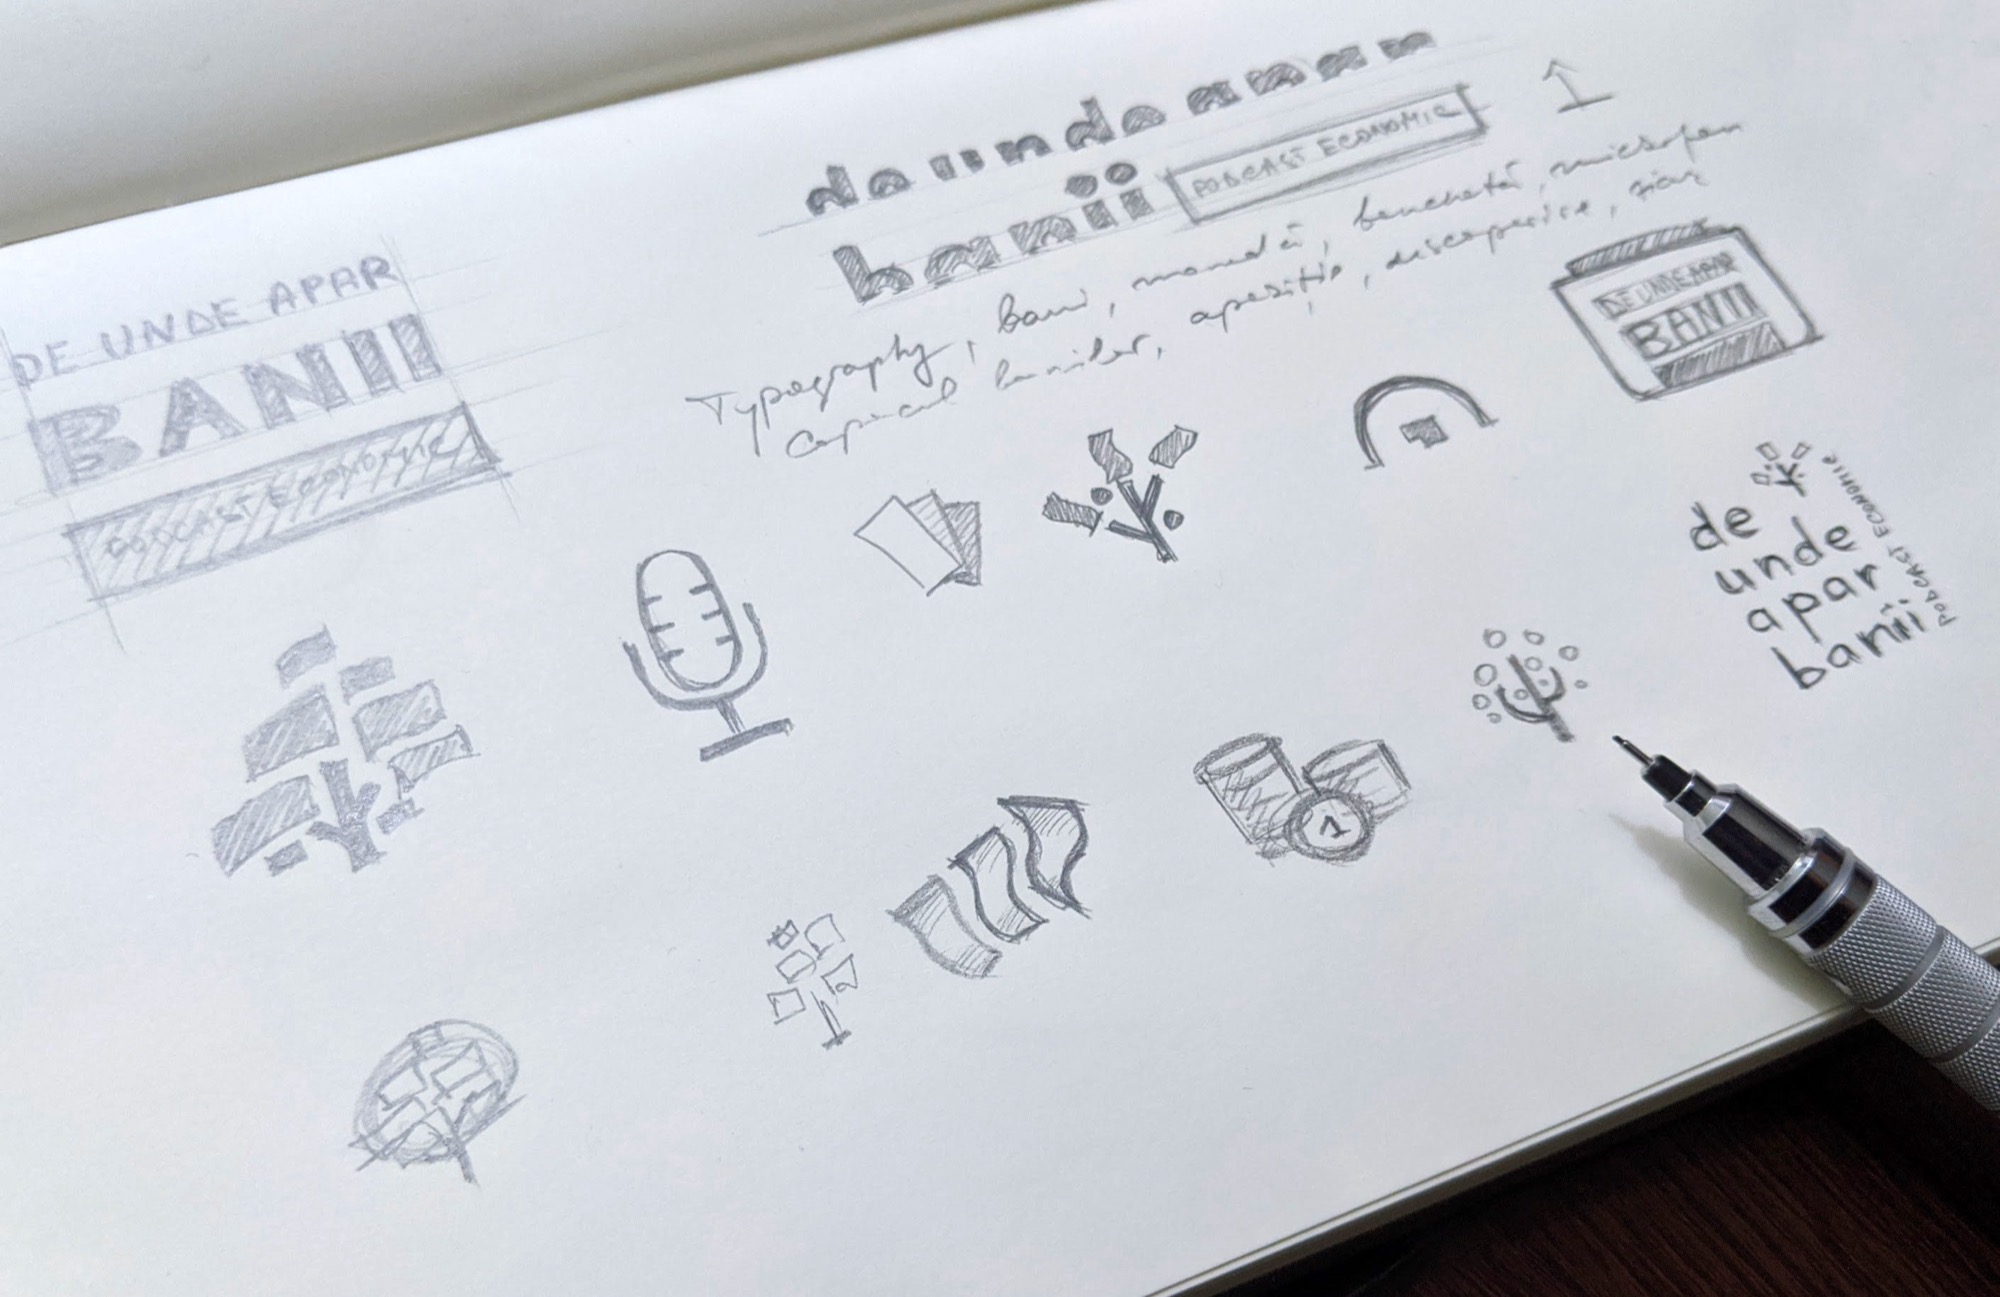 DE UNDE APAR
BANII
PODCAST ECONOMIC
de unde apar
banii
PODCAST ECONOMIC
Typography, bani, monedă, banchetă, microfon
Copacul banilor, apariție, descoperire, ziar
DE UNDE APAR
BANII
de
unde
apar
banii
PODCAST ECONOMIC
1